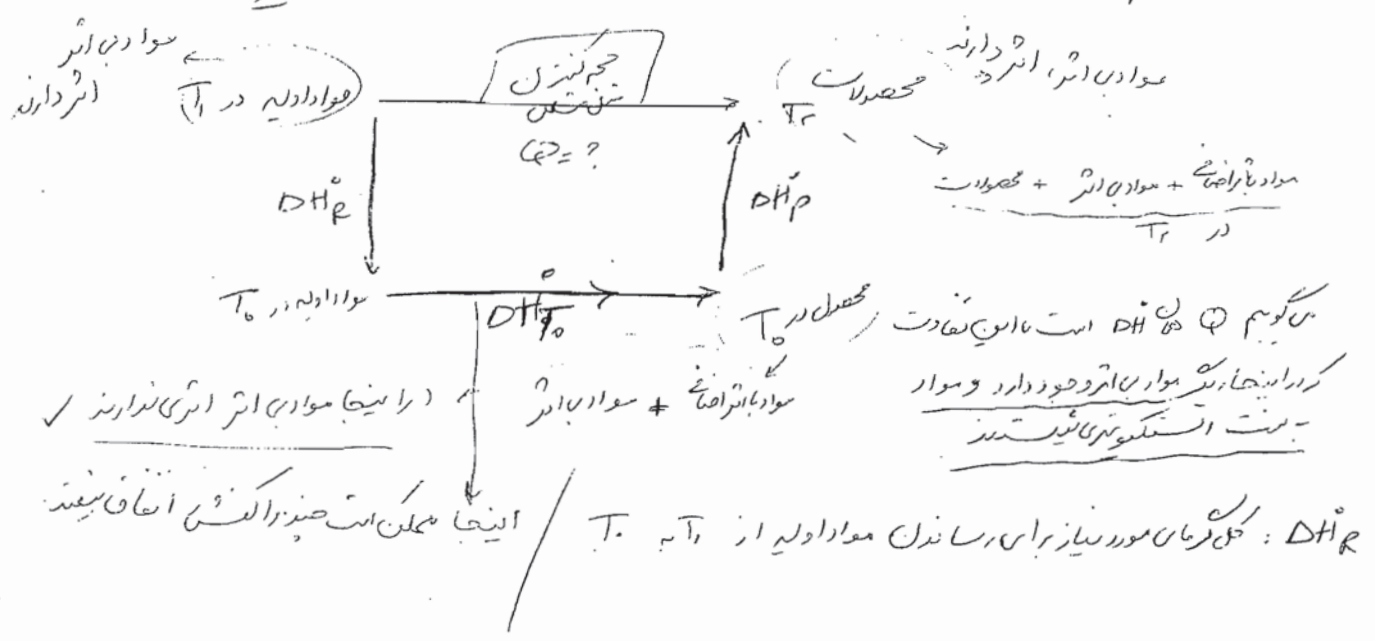 مواد بی اثر اثر دارند
مواد اولیه در T₁
حجم کنترل
Q = ?
محصولات T₂
مواد بی اثر، اثر دارند
مواد با اثر اضافی + مواد بی اثر + محصولات
در T₂
ΔH°R
ΔH°P
مواد اولیه در T₀
ΔH°T₀
محصول در T₀
می گوییم Q همان ΔH° است با این تفاوت
که در اینجا دیگر مواد بی اثر وجود دارد و مواد
به نسبت استکیومتری نیستند
مواد با اثر اضافی + مواد بی اثر
در اینجا مواد بی اثر اثری ندارند ✓
اینجا ممکن است چند واکنش اتفاق بیفتد
ΔH°R : کل گرمای مورد نیاز برای رساندن مواد اولیه از T₁ به T₀